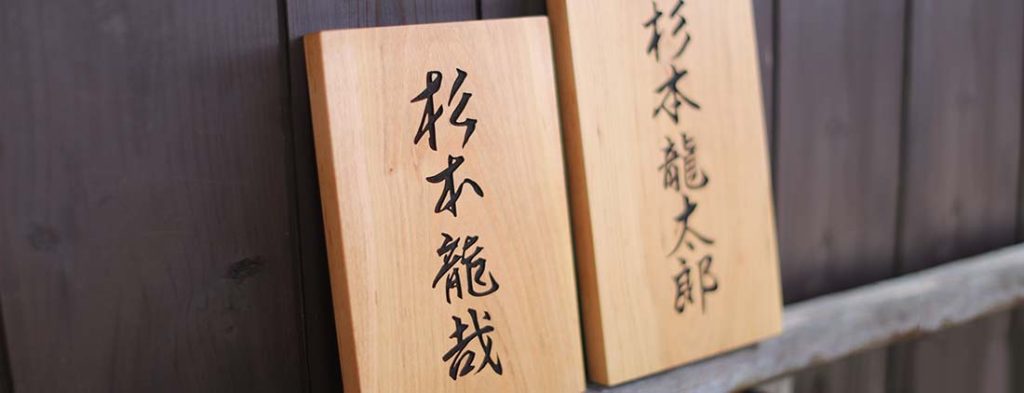 杉本龍太郎
松本龍哉